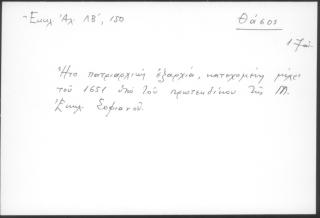 Ἐκκλ. Ἀλ. ΛΒ', 150
Θάσος
17 αἰ.
Ἦτο πατριαρχική ἐξαρχία, κατεχομένη μέχρι
τοῦ 1651 ὑπό τοῦ πρωτεκδίκου τῆς Μ.
Ἐκκλ. Σοφιανοῦ.